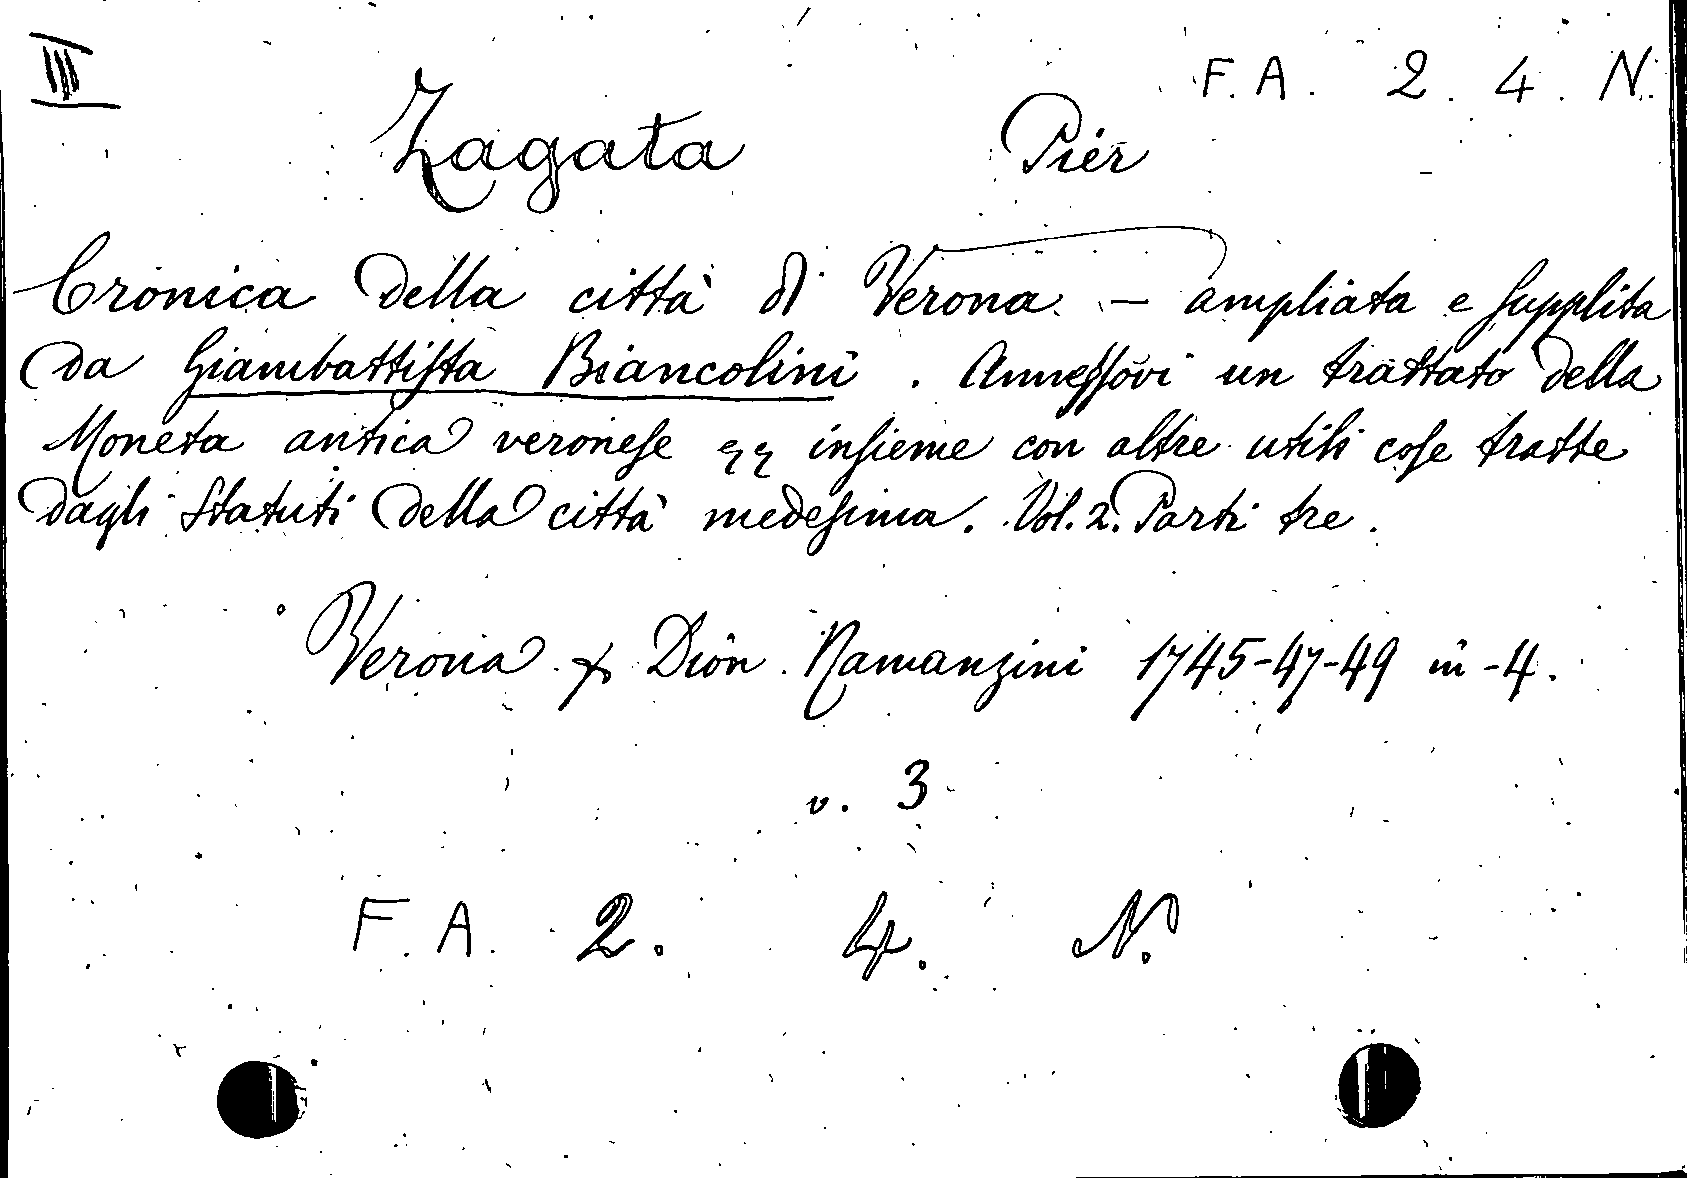 III
F. A. 2. 4. N.
Zagata Pier
Cronica della città di Verona. — ampliata e supplita
da Giambattista Biancolini. Annessovi un trattato della
Moneta antica veronese insieme con altre utili cose tratte
dagli Statuti della città medesima. Vol. 2. Parti tre.
Verona Dion. Ramanzini 1745-47-49 in-4.
v. 3
F. A. 2. 4. N.